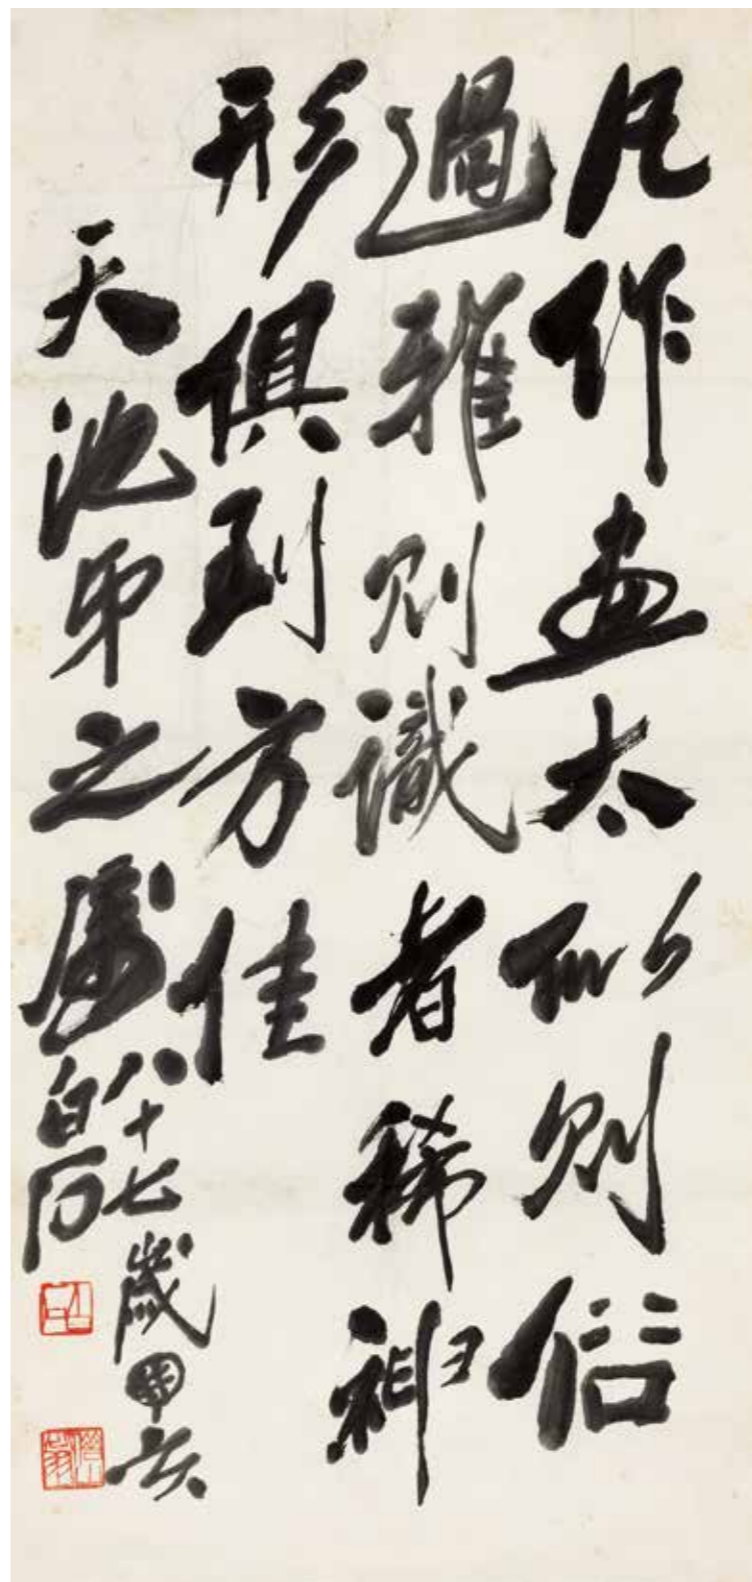 凡作畫太似則俗
過雅則識者稀神
形俱到方佳
天池弟之屬
八十七歲
白石